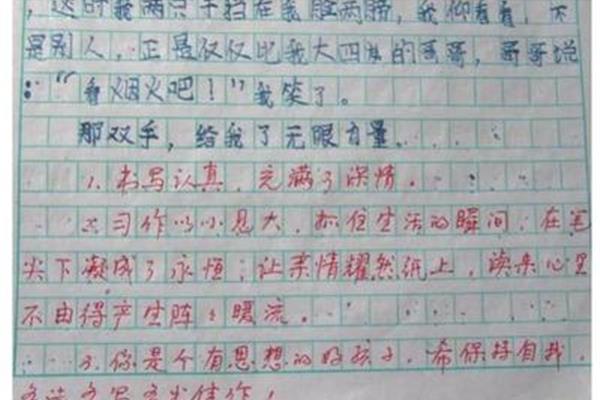 ，这时我两只手挡在我脸两膀，我仰着看，不
是别人，正是仅仅比我大四岁的哥哥，哥哥说
：“看烟火吧！”我笑了。
那双手，给我了无限力量。
1.书写认真，充满了深情。
2.习作以小见大，抓住生活的瞬间；在笔
尖下凝成了永恒；让亲情耀然纸上，读来心里
不由得产生阵阵暖流。
3.你是个有思想的好孩子，希保持自我，
多读多写多出佳作！